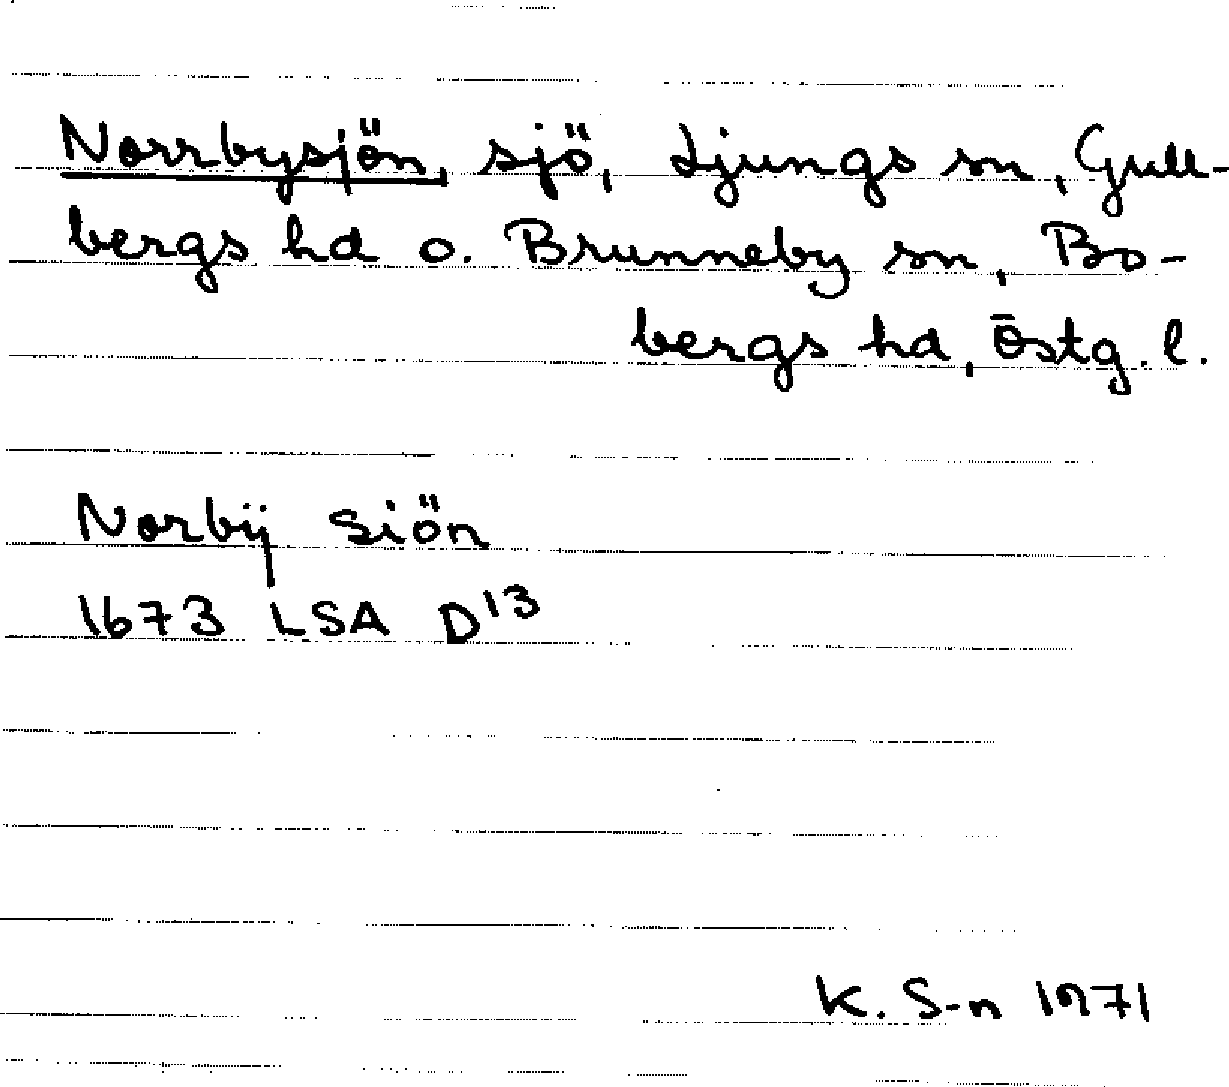 Norrbysjön, sjö, Ljungs sn, Gull-
bergs hd o. Brunneby sn, Bo-
bergs hd, Östg. l.
Norbÿ Siön
1673 LSA D13
K. S-n 1971